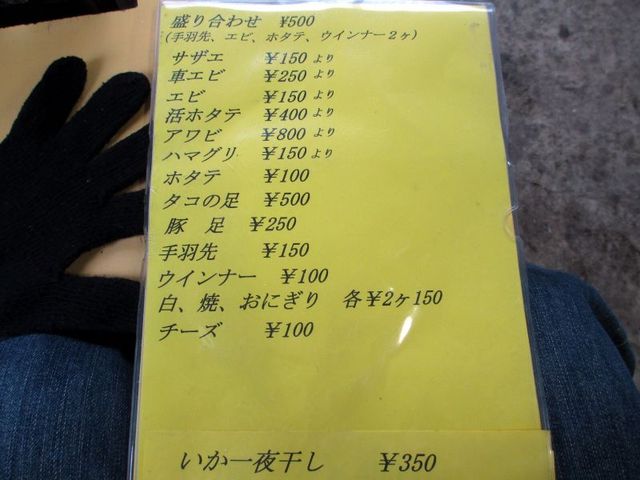 盛り合わせ ¥500
(手羽先、エビ、ホタテ、ウインナー2ヶ)
サザエ ¥150より
車エビ ¥250より
エビ ¥150より
活ホタテ ¥400より
アワビ ¥800より
ハマグリ ¥150より
ホタテ ¥100
タコの足 ¥500
豚 足 ¥250
手羽先 ¥150
ウインナー ¥100
白、焼、おにぎり 各¥2ヶ150
チーズ ¥100
いか一夜干し ¥350